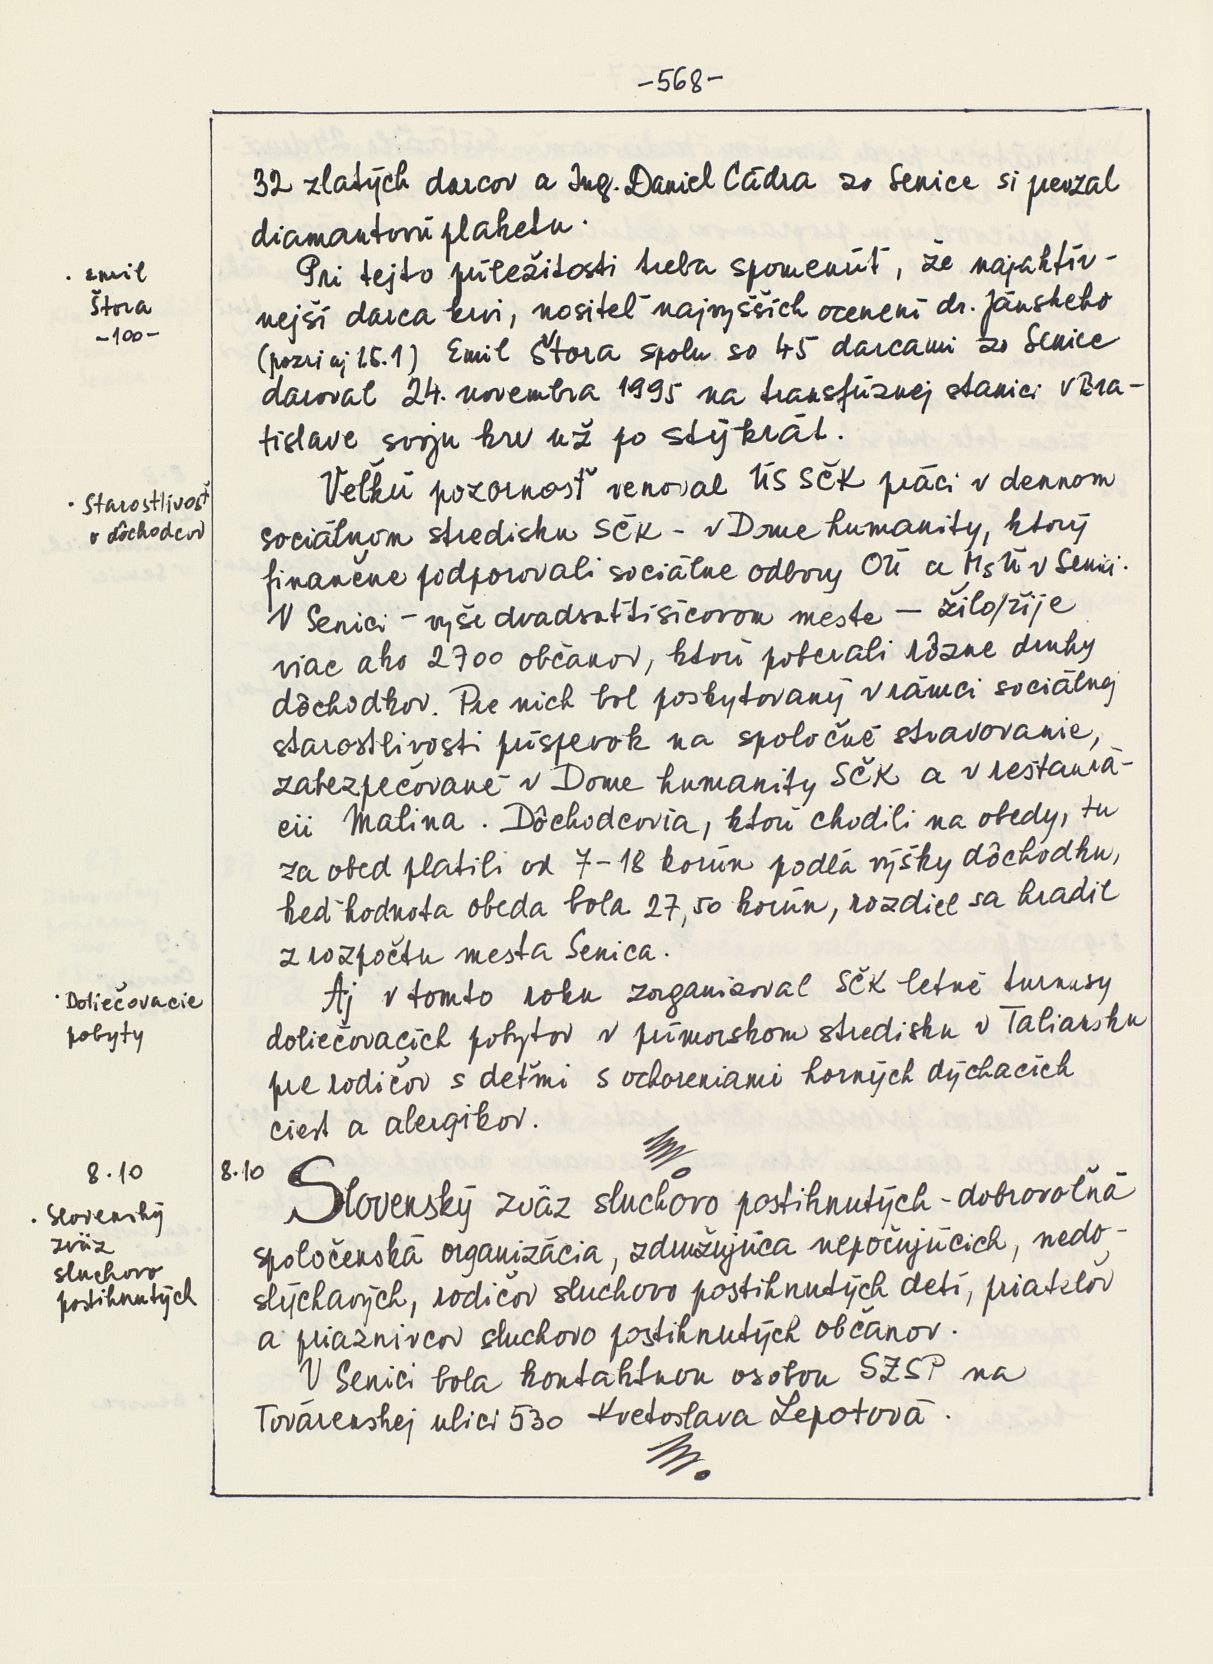 -568-
32 zlatých darcov a Ing. Daniel Čádra zo Senice si prevzal
diamantovú plaketu.
· Emil
Štora
-100-
Pri tejto príležitosti treba spomenúť, že najaktív-
nejší darca krvi, nositeľ najvyšších ocenení dr. Jánskeho
(pozri aj 15.1) Emil Štora spolu so 45 darcami zo Senice
daroval 24. novembra 1995 na transfúznej stanici v Bra-
tislave svoju krv už po stýkrát.
· Starostlivosť
o dôchodcov
Veľkú pozornosť venoval ÚS SČK práci v dennom
sociálnom stredisku SČK - v Dome humanity, ktorý
finančne podporovali sociálne odbory OÚ a MsÚ v Senici.
V Senici - vyše dvadsaťtisícovom meste - žilo/žije
viac ako 2700 občanov, ktorí poberali rôzne druhy
dôchodkov. Pre nich bol poskytovaný v rámci sociálnej
starostlivosti príspevok na spoločné stravovanie,
zabezpečované v Dome humanity SČK a v reštaurá-
cii Malina. Dôchodcovia, ktorí chodili na obedy, tu
za obed platili od 7-18 korún podľa výšky dôchodku,
keď hodnota obeda bola 27,50 korún, rozdiel sa hradil
z rozpočtu mesta Senica.
· Doliečovacie
pobyty
Aj v tomto roku zorganizoval SČK letné turnusy
doliečovacích pobytov v prímorskom stredisku v Taliansku
pre rodičov s deťmi s ochoreniami horných dýchacích
ciest a alergikov.
8.10
· Slovenský
zväz
sluchovo
postihnutých
8.10 Slovenský zväz sluchovo postihnutých - dobrovoľná
spoločenská organizácia, združujúca nepočujúcich, nedo-
slýchavých, rodičov sluchovo postihnutých detí, priateľov
a priaznivcov sluchovo postihnutých občanov.
V Senici bola kontaktnou osobou SZSP na
Továrenskej ulici 530 Kvetoslava Lepotová.